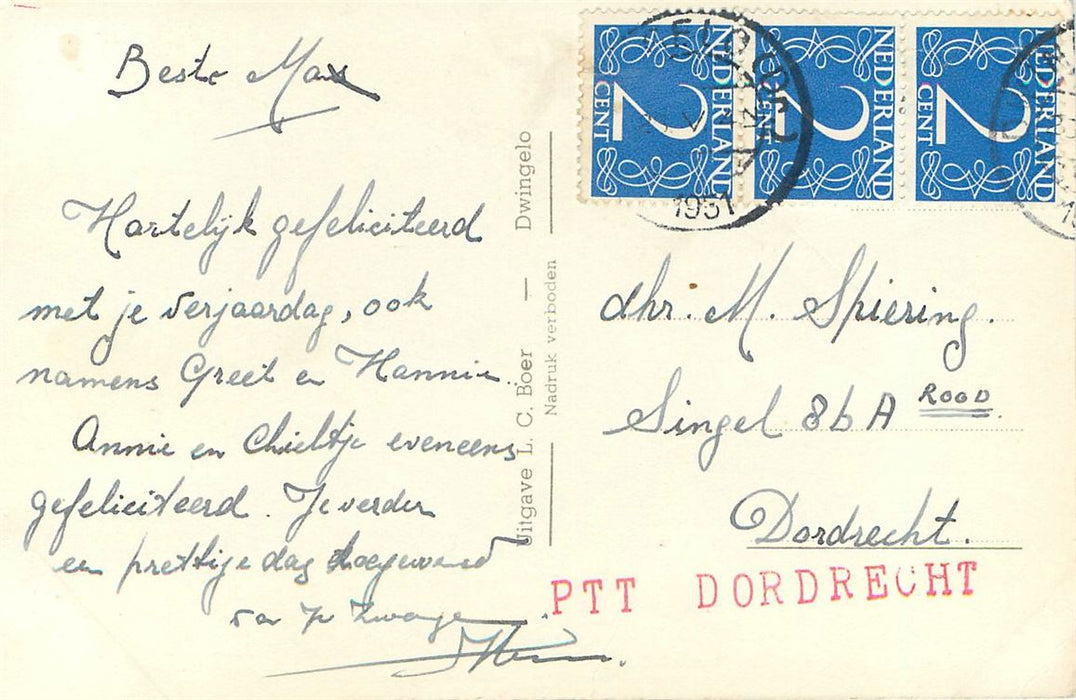 Beste Max
Hartelijk gefeliciteerd
met je verjaardag, ook
namens Greet en Hannie.
Annie en Chieltje eveneens
gefeliciteerd. Je verder
een prettige dag toegewenst
Uitgave L. C. Boer — Dwingelo
Nadruk verboden
NEDERLAND
2
CENT
NEDERLAND
2
CENT
NEDERLAND
2
CENT
1951
dhr. M. Spiering.
Singel 86 A ROOD.
Dordrecht.
PTT DORDRECHT